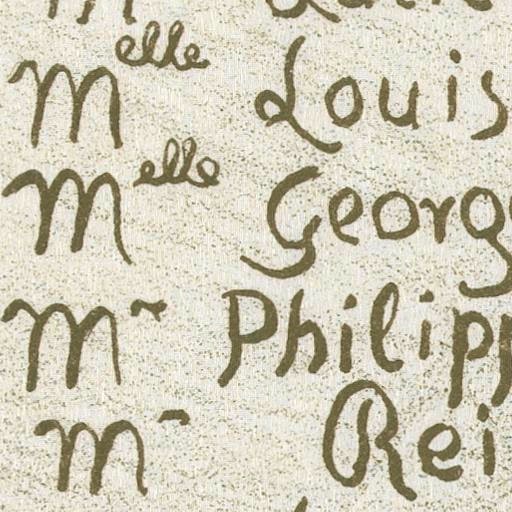 Melle Louis
Melle Georg
Mr Philip
Mr Rei